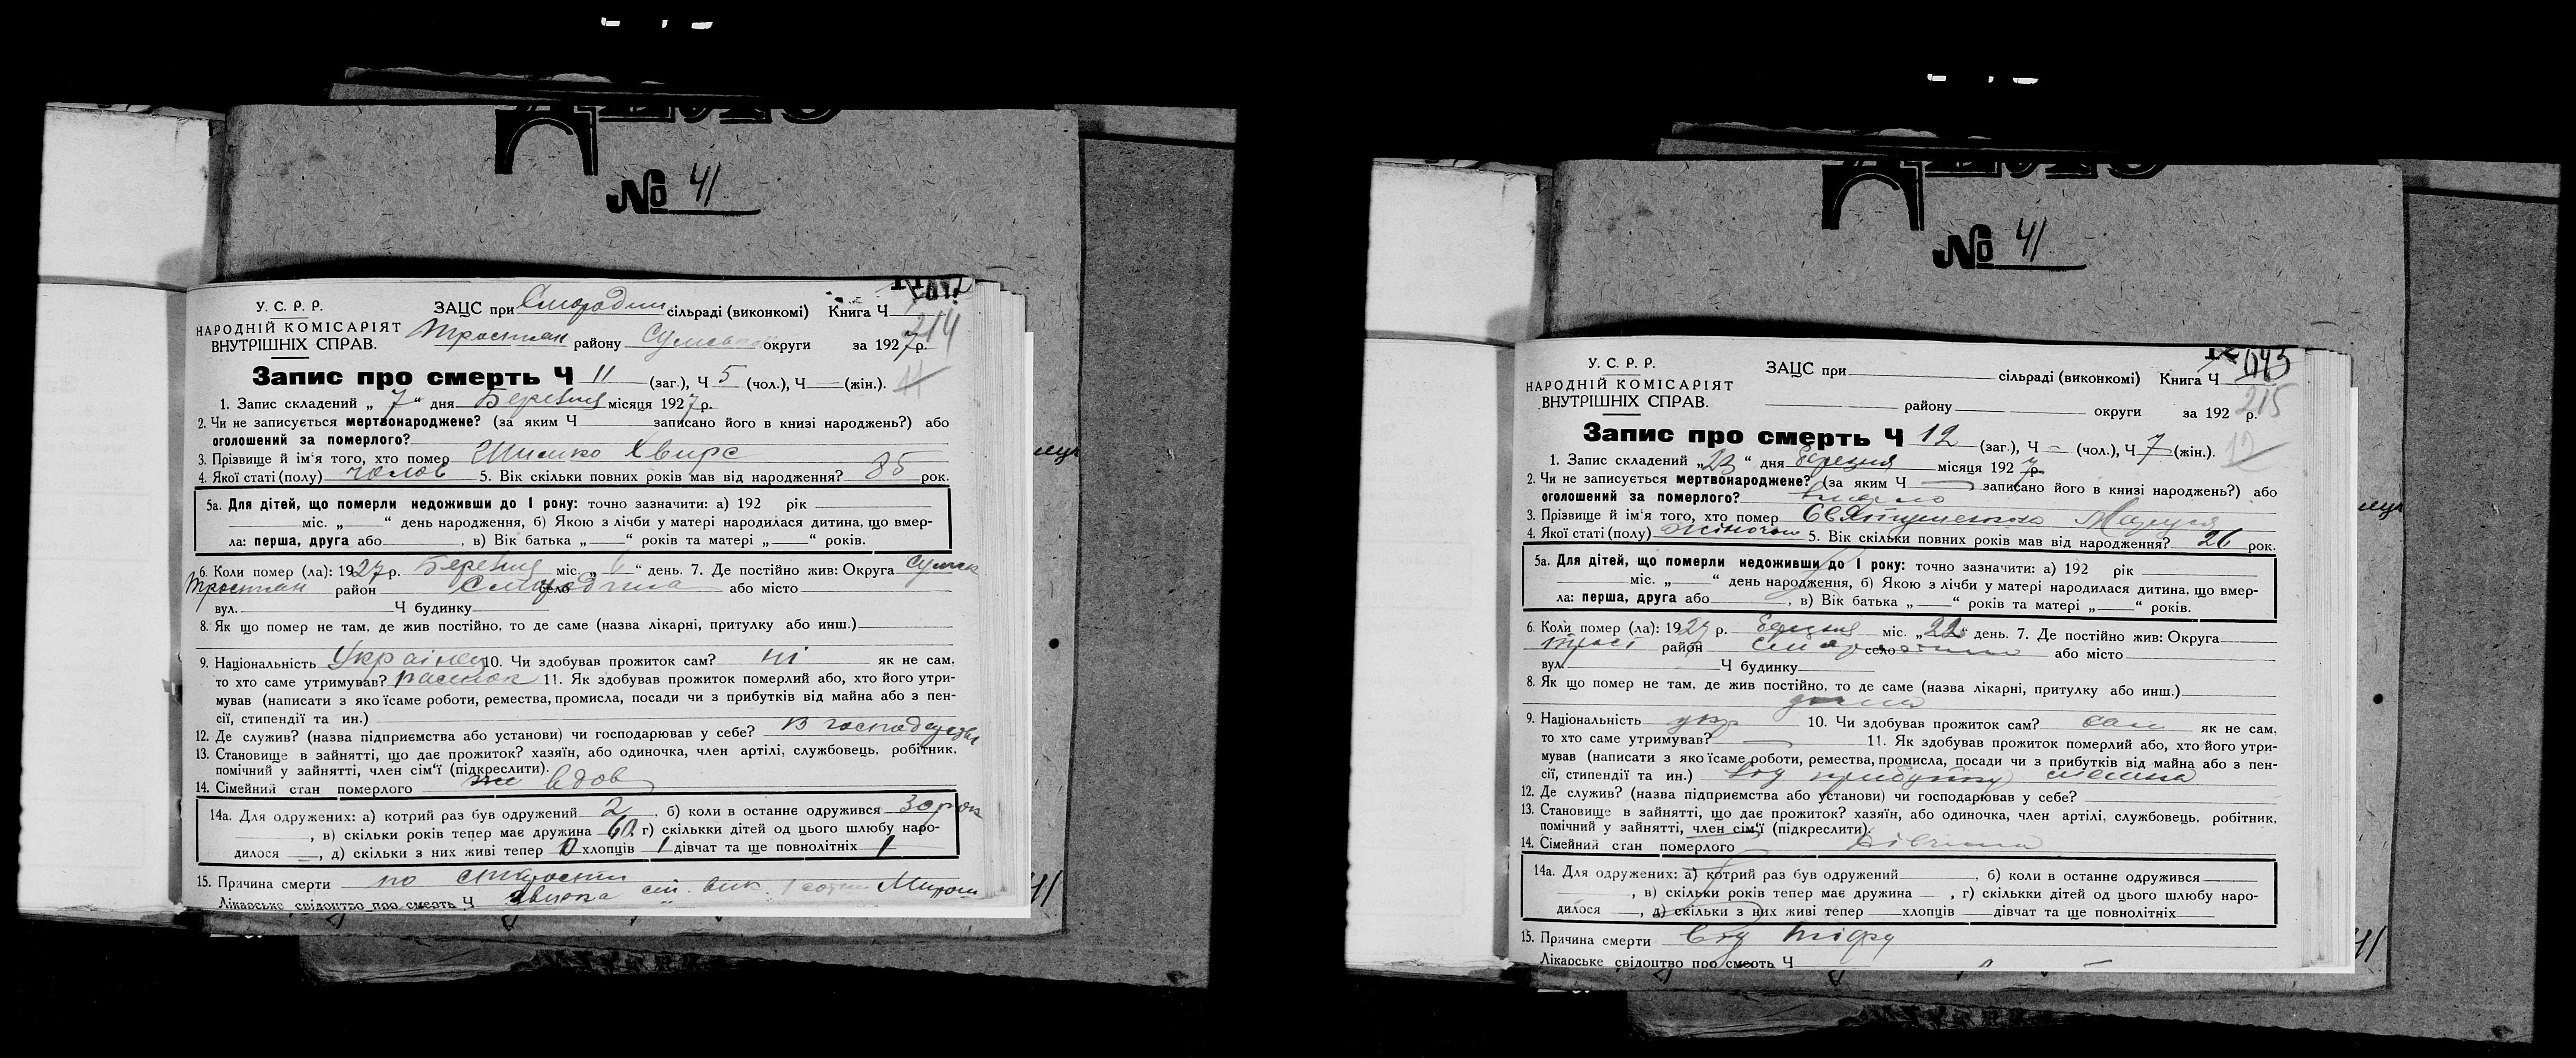 № 41
У. С. Р. Р.
НАРОДНІЙ КОМІСАРІЯТ
ВНУТРІШНІХ СПРАВ.
ЗАЦС при Смородин сільраді (виконкомі) Книга Ч
214
Тростян району Сумської округи за 1927 р.
Запис про смерть Ч 11 (заг.), Ч 5 (чол.), Ч — (жін.). 11
1. Запис складений „ 7 “ дня Березня місяця 1927 р.
2. Чи не записується мертвонароджене? (за яким Ч записано його в книзі народжень?) або
оголошений за померлого?
3. Прізвище й ім'я того, хто помер Шимко Хвирс
4. Якої статі (полу) чолов 5. Вік скільки повних років мав від народження? 85 рок.
5а. Для дітей, що померли недоживши до 1 року: точно зазначити: а) 192 рік
міс. „ “ день народження, б) Якою з лічби у матері народилася дитина, що вмер-
ла: перша, друга або , в) Вік батька „ “ років та матері „ “ років.
6. Коли помер (ла): 1927 р. Березня міс. „ 6 “ день. 7. Де постійно жив: Округа Сумськ
Тростян район Смородина село або місто
вул. Ч будинку
8. Як що помер не там, де жив постійно, то де саме (назва лікарні, притулку або инш.)
9. Національність Українец 10. Чи здобував прожиток сам? ні як не сам,
то хто саме утримував? 11. Як здобував прожиток померлий або, хто його утри-
мував (написати з яко їсаме роботи, ремества, промисла, посади чи з прибутків від майна або з пен-
сії, стипендії та ин.)
12. Де служив? (назва підприємства або установи) чи господарював у себе? В господарстві
13. Становище в зайнятті, що дає прожиток? хазяїн, або одиночка, член артілі, службовець, робітник,
помічний у зайнятті, член сім'ї (підкреслити).
14. Сімейний стан померлого вдов
14а. Для одружених: а) котрий раз був одружений 2 , б) коли в останнє одружився 30 рок
, в) скільки років тепер має дружина 60 г) скількки дітей од цього шлюбу наро-
дилося , д) скільки з них живі тепер 0 хлопців 1 дівчат та ще повнолітніх 1
15. Причина смерти по старости
Лікарське свідоцтво про смерть Ч
№ 41
У. С. Р. Р.
НАРОДНІЙ КОМІСАРІЯТ
ВНУТРІШНІХ СПРАВ.
ЗАЦС при сільраді (виконкомі) Книга Ч
215
району округи за 192 р.
Запис про смерть Ч 12 (заг.), Ч - (чол.), Ч 7 (жін.). 12
1. Запис складений „ 23 “ дня березня місяця 1927 р.
2. Чи не записується мертвонароджене? (за яким Ч записано його в книзі народжень?) або
оголошений за померлого? вмерло
3. Прізвище й ім'я того, хто помер Маруся
4. Якої статі (полу) жіночои 5. Вік скільки повних років мав від народження? 26 рок.
5а. Для дітей, що померли недоживши до 1 року: точно зазначити: а) 192 рік
міс. „ “ день народження, б) Якою з лічби у матері народилася дитина, що вмер-
ла: перша, друга або , в) Вік батька „ “ років та матері „ “ років.
6. Коли помер (ла): 1927 р. березня міс. „ 22 “ день. 7. Де постійно жив: Округа
Трост район село або місто
вул. Ч будинку
8. Як що помер не там, де жив постійно, то де саме (назва лікарні, притулку або инш.)
дома
9. Національність укр 10. Чи здобував прожиток сам? сам як не сам,
то хто саме утримував? 11. Як здобував прожиток померлий або, хто його утри-
мував (написати з яко їсаме роботи, ремества, промисла, посади чи з прибутків від майна або з пен-
сії, стипендії та ин.) від прибутку
12. Де служив? (назва підприємства або установи) чи господарював у себе?
13. Становище в зайнятті, що дає прожиток? хазяїн, або одиночка, член артілі, службовець, робітник,
помічний у зайнятті, член сім'ї (підкреслити).
14. Сімейний стан померлого дівчина
14а. Для одружених: а) котрий раз був одружений , б) коли в останнє одружився
, в) скільки років тепер має дружина , г) скількки дітей од цього шлюбу наро-
дилося , д) скільки з них живі тепер хлопців дівчат та ще повнолітніх
15. Причина смерти від тіфу
Лікарське свідоцтво про смерть Ч